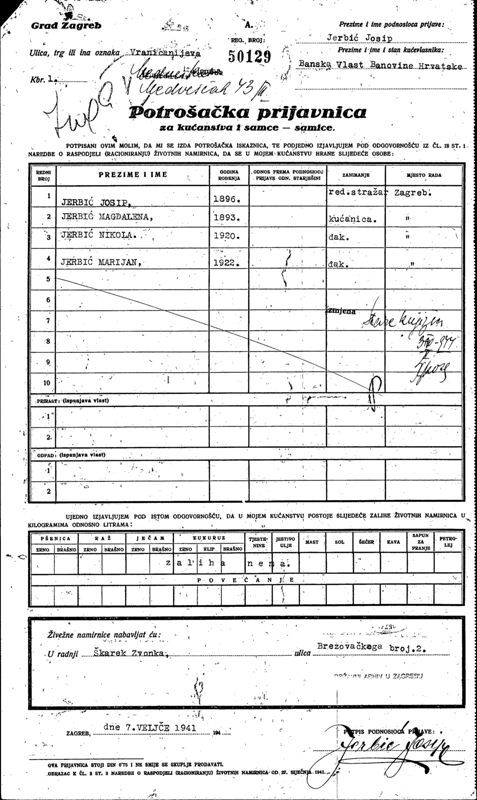 Grad Zagreb
A.
REG. BROJ:
50129
Prezime i ime podnosioca prijave:
Jerbić Josip
Ulica, trg ili ina oznaka Vranicanijeva
Prezime i ime i stan kućevlasnika:
Banska Vlast Banovine Hrvatske
Kbr. 1.
Medveščak 73/III
Potrošačka prijavnica
za kućanstva i samce – samice.
POTPISANI OVIM MOLIM, DA MI SE IZDA POTROŠAČKA ISKAZNICA, TE PODJEDNO IZJAVLJUJEM POD ODGOVORNOŠĆU IZ ČL. 18 ST. 1
NAREDBE O RASPODJELI (RACIONIRANJU) ŽIVOTNIH NAMIRNICA, DA SE U MOJEM KUĆANSTVU HRANE SLIJEDEĆE OSOBE:
REDNI BROJ PREZIME I IME GODINA ROĐENJA ODNOS PREMA PODNOSIOCU PRIJAVE ODN. STARJEŠINI ZANIMANJE MJESTO RADA
1 JERBIĆ JOSIP, 1896. red.stražar Zagreb.
2 JERBIĆ MAGDALENA, 1893. kućanica. "
3 JERBIĆ NIKOLA. 1920. đak. "
4 JERBIĆ MARIJAN, 1922. đak. "
5
6
7 izmjena
8
9
10
PRIRAST: (ispunjava vlast)
1
2.
ODPAD: (ispunjava vlast)
1
2
UJEDNO IZJAVLJUJEM POD ISTOM ODGOVORNOŠĆU, DA U MOJEM KUĆANSTVU POSTOJE SLIJEDEĆE ZALIHE ŽIVOTNIH NAMIRNICA U
KILOGRAMIMA ODNOSNO LITRAMA:
PŠENICA RAŽ JEČAM KUKURUZ TJESTENINE JESTIVO ULJE MAST SOL ŠEĆER KAVA SAPUN ZA PRANJE PETROLEJ
ZRNO BRAŠNO ZRNO BRAŠNO ZRNO BRAŠNO ZRNO KLIP BRAŠNO
zaliha nema.
POVEĆANJE
Živežne namirnice nabavljat ću:
U radnji Škarek Zvonka, ulica Brezovačkoga broj.2.
DRŽAVNI ARHIV U ZAGREBU
ZAGREB, dne 7. VELJČE 1941 194
POTPIS PODNOSIOCA PRIJAVE:
Jerbić Josip
OVA PRIJAVNICA STOJI DIN 0'75 I NE SMIJE SE SKUPLJE PRODAVATI.
OBRAZAC K ČL. 2 ST. 2 NAREDBE O RASPODJELI (RACIONIRANJU) ŽIVOTNIH NAMIRNICA OD 27. SIJEČNJA 1941.